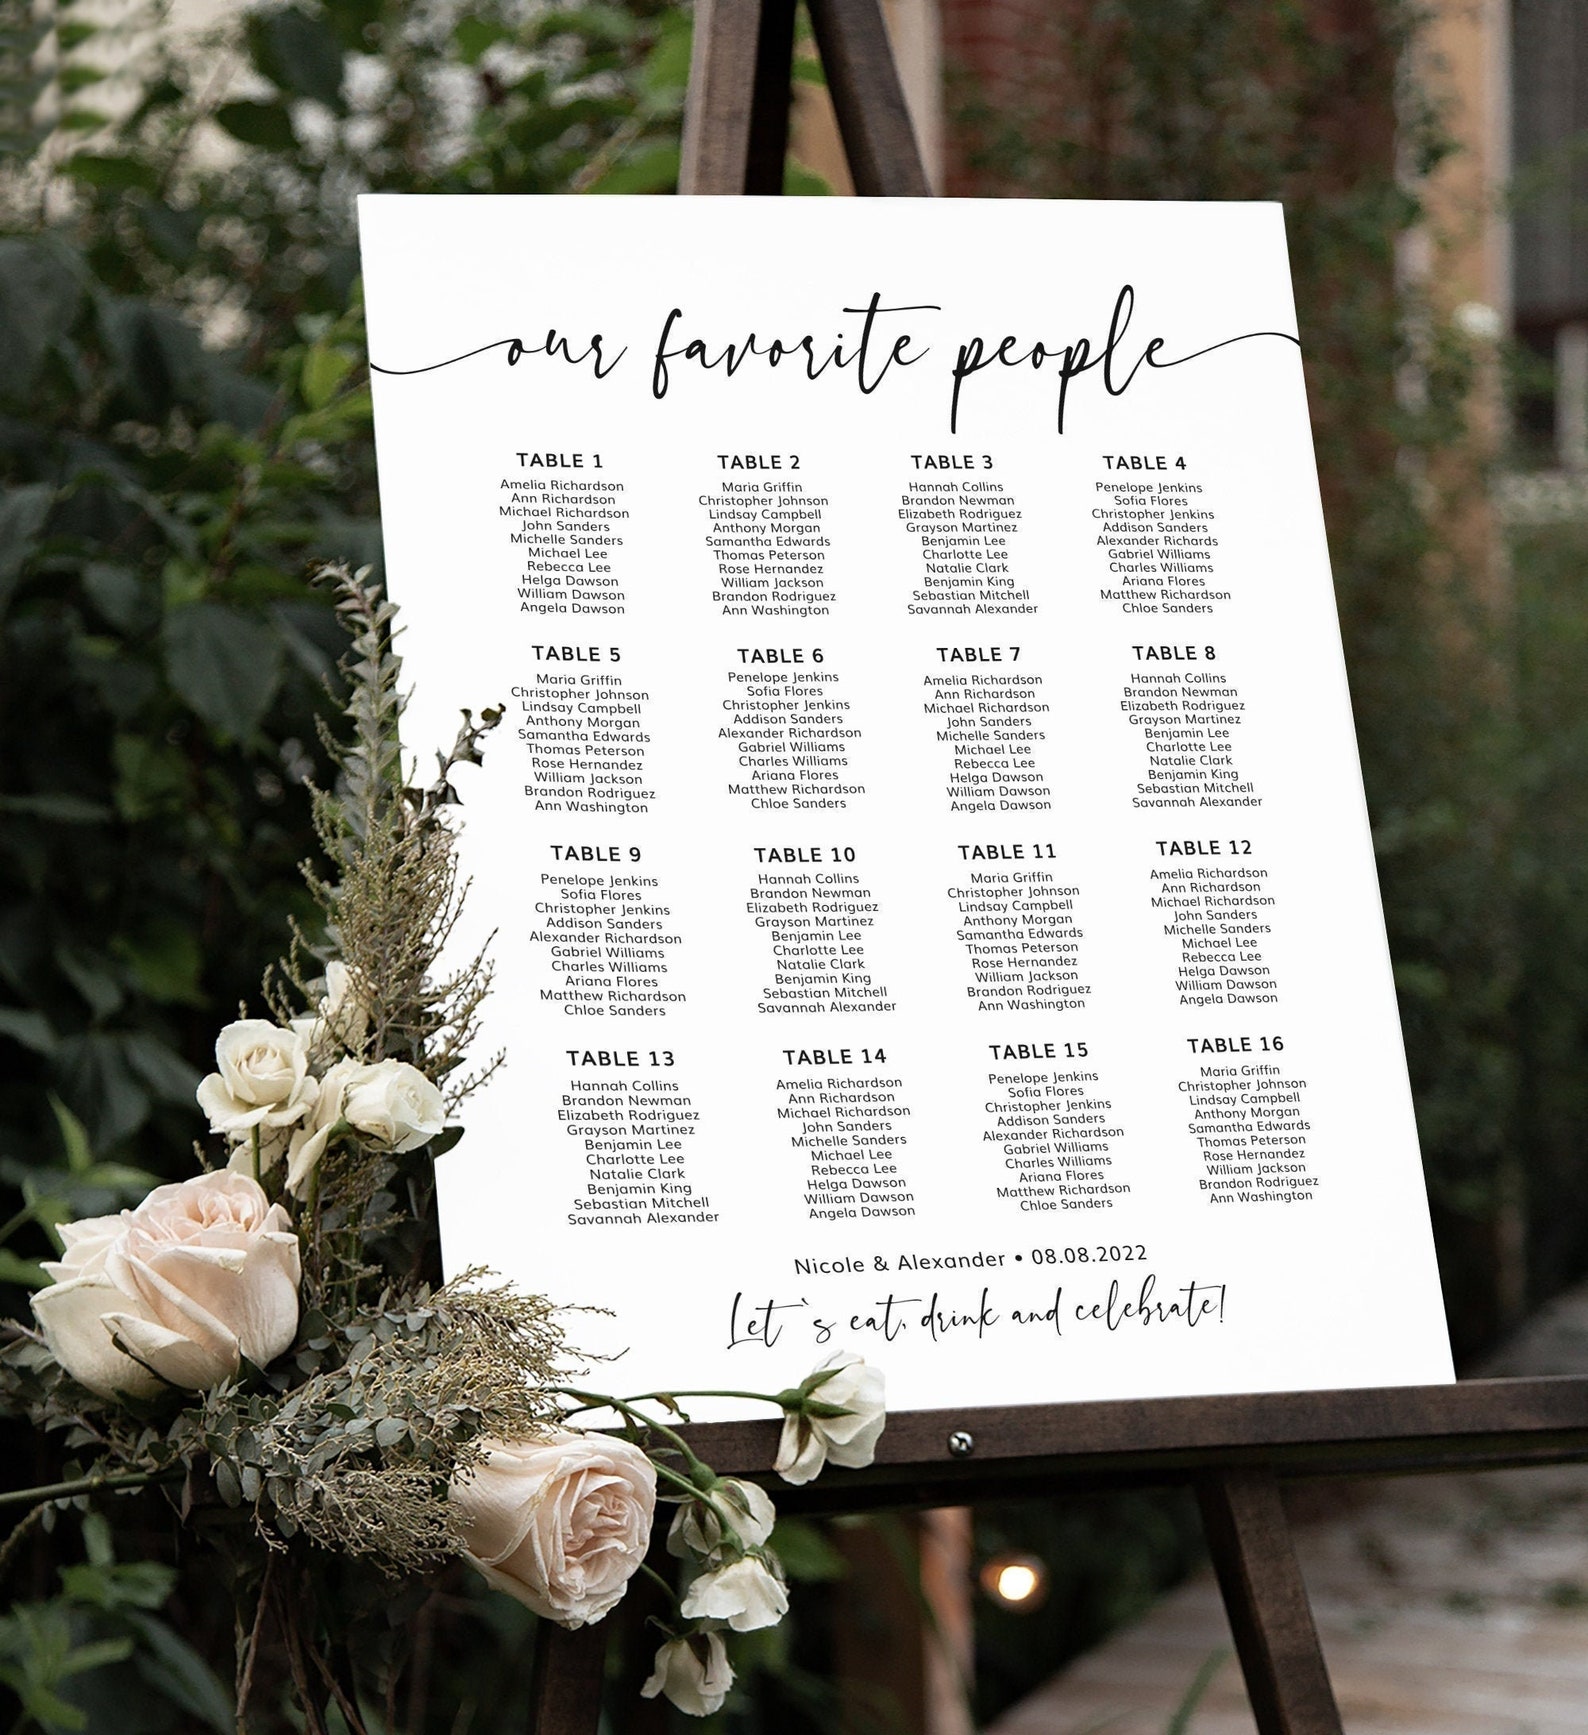 our favorite people
TABLE 1
Amelia Richardson
Ann Richardson
Michael Richardson
John Sanders
Michelle Sanders
Michael Lee
Rebecca Lee
Helga Dawson
William Dawson
Angela Dawson
TABLE 2
Maria Griffin
Christopher Johnson
Lindsay Campbell
Anthony Morgan
Samantha Edwards
Thomas Peterson
Rose Hernandez
William Jackson
Brandon Rodriguez
Ann Washington
TABLE 3
Hannah Collins
Brandon Newman
Elizabeth Rodriguez
Grayson Martinez
Benjamin Lee
Charlotte Lee
Natalie Clark
Benjamin King
Sebastian Mitchell
Savannah Alexander
TABLE 4
Penelope Jenkins
Sofia Flores
Christopher Jenkins
Addison Sanders
Alexander Richards
Gabriel Williams
Charles Williams
Ariana Flores
Matthew Richardson
Chloe Sanders
TABLE 5
Maria Griffin
Christopher Johnson
Lindsay Campbell
Anthony Morgan
Samantha Edwards
Thomas Peterson
Rose Hernandez
William Jackson
Brandon Rodriguez
Ann Washington
TABLE 6
Penelope Jenkins
Sofia Flores
Christopher Jenkins
Addison Sanders
Alexander Richardson
Gabriel Williams
Charles Williams
Ariana Flores
Matthew Richardson
Chloe Sanders
TABLE 7
Amelia Richardson
Ann Richardson
Michael Richardson
John Sanders
Michelle Sanders
Michael Lee
Rebecca Lee
Helga Dawson
William Dawson
Angela Dawson
TABLE 8
Hannah Collins
Brandon Newman
Elizabeth Rodriguez
Grayson Martinez
Benjamin Lee
Charlotte Lee
Natalie Clark
Benjamin King
Sebastian Mitchell
Savannah Alexander
TABLE 9
Penelope Jenkins
Sofia Flores
Christopher Jenkins
Addison Sanders
Alexander Richardson
Gabriel Williams
Charles Williams
Ariana Flores
Matthew Richardson
Chloe Sanders
TABLE 10
Hannah Collins
Brandon Newman
Elizabeth Rodriguez
Grayson Martinez
Benjamin Lee
Charlotte Lee
Natalie Clark
Benjamin King
Sebastian Mitchell
Savannah Alexander
TABLE 11
Maria Griffin
Christopher Johnson
Lindsay Campbell
Anthony Morgan
Samantha Edwards
Thomas Peterson
Rose Hernandez
William Jackson
Brandon Rodriguez
Ann Washington
TABLE 12
Amelia Richardson
Ann Richardson
Michael Richardson
John Sanders
Michelle Sanders
Michael Lee
Rebecca Lee
Helga Dawson
William Dawson
Angela Dawson
TABLE 13
Hannah Collins
Brandon Newman
Elizabeth Rodriguez
Grayson Martinez
Benjamin Lee
Charlotte Lee
Natalie Clark
Benjamin King
Sebastian Mitchell
Savannah Alexander
TABLE 14
Amelia Richardson
Ann Richardson
Michael Richardson
John Sanders
Michelle Sanders
Michael Lee
Rebecca Lee
Helga Dawson
William Dawson
Angela Dawson
TABLE 15
Penelope Jenkins
Sofia Flores
Christopher Jenkins
Addison Sanders
Alexander Richardson
Gabriel Williams
Charles Williams
Ariana Flores
Matthew Richardson
Chloe Sanders
TABLE 16
Maria Griffin
Christopher Johnson
Lindsay Campbell
Anthony Morgan
Samantha Edwards
Thomas Peterson
Rose Hernandez
William Jackson
Brandon Rodriguez
Ann Washington
Nicole & Alexander • 08.08.2022
Let`s eat, drink and celebrate!